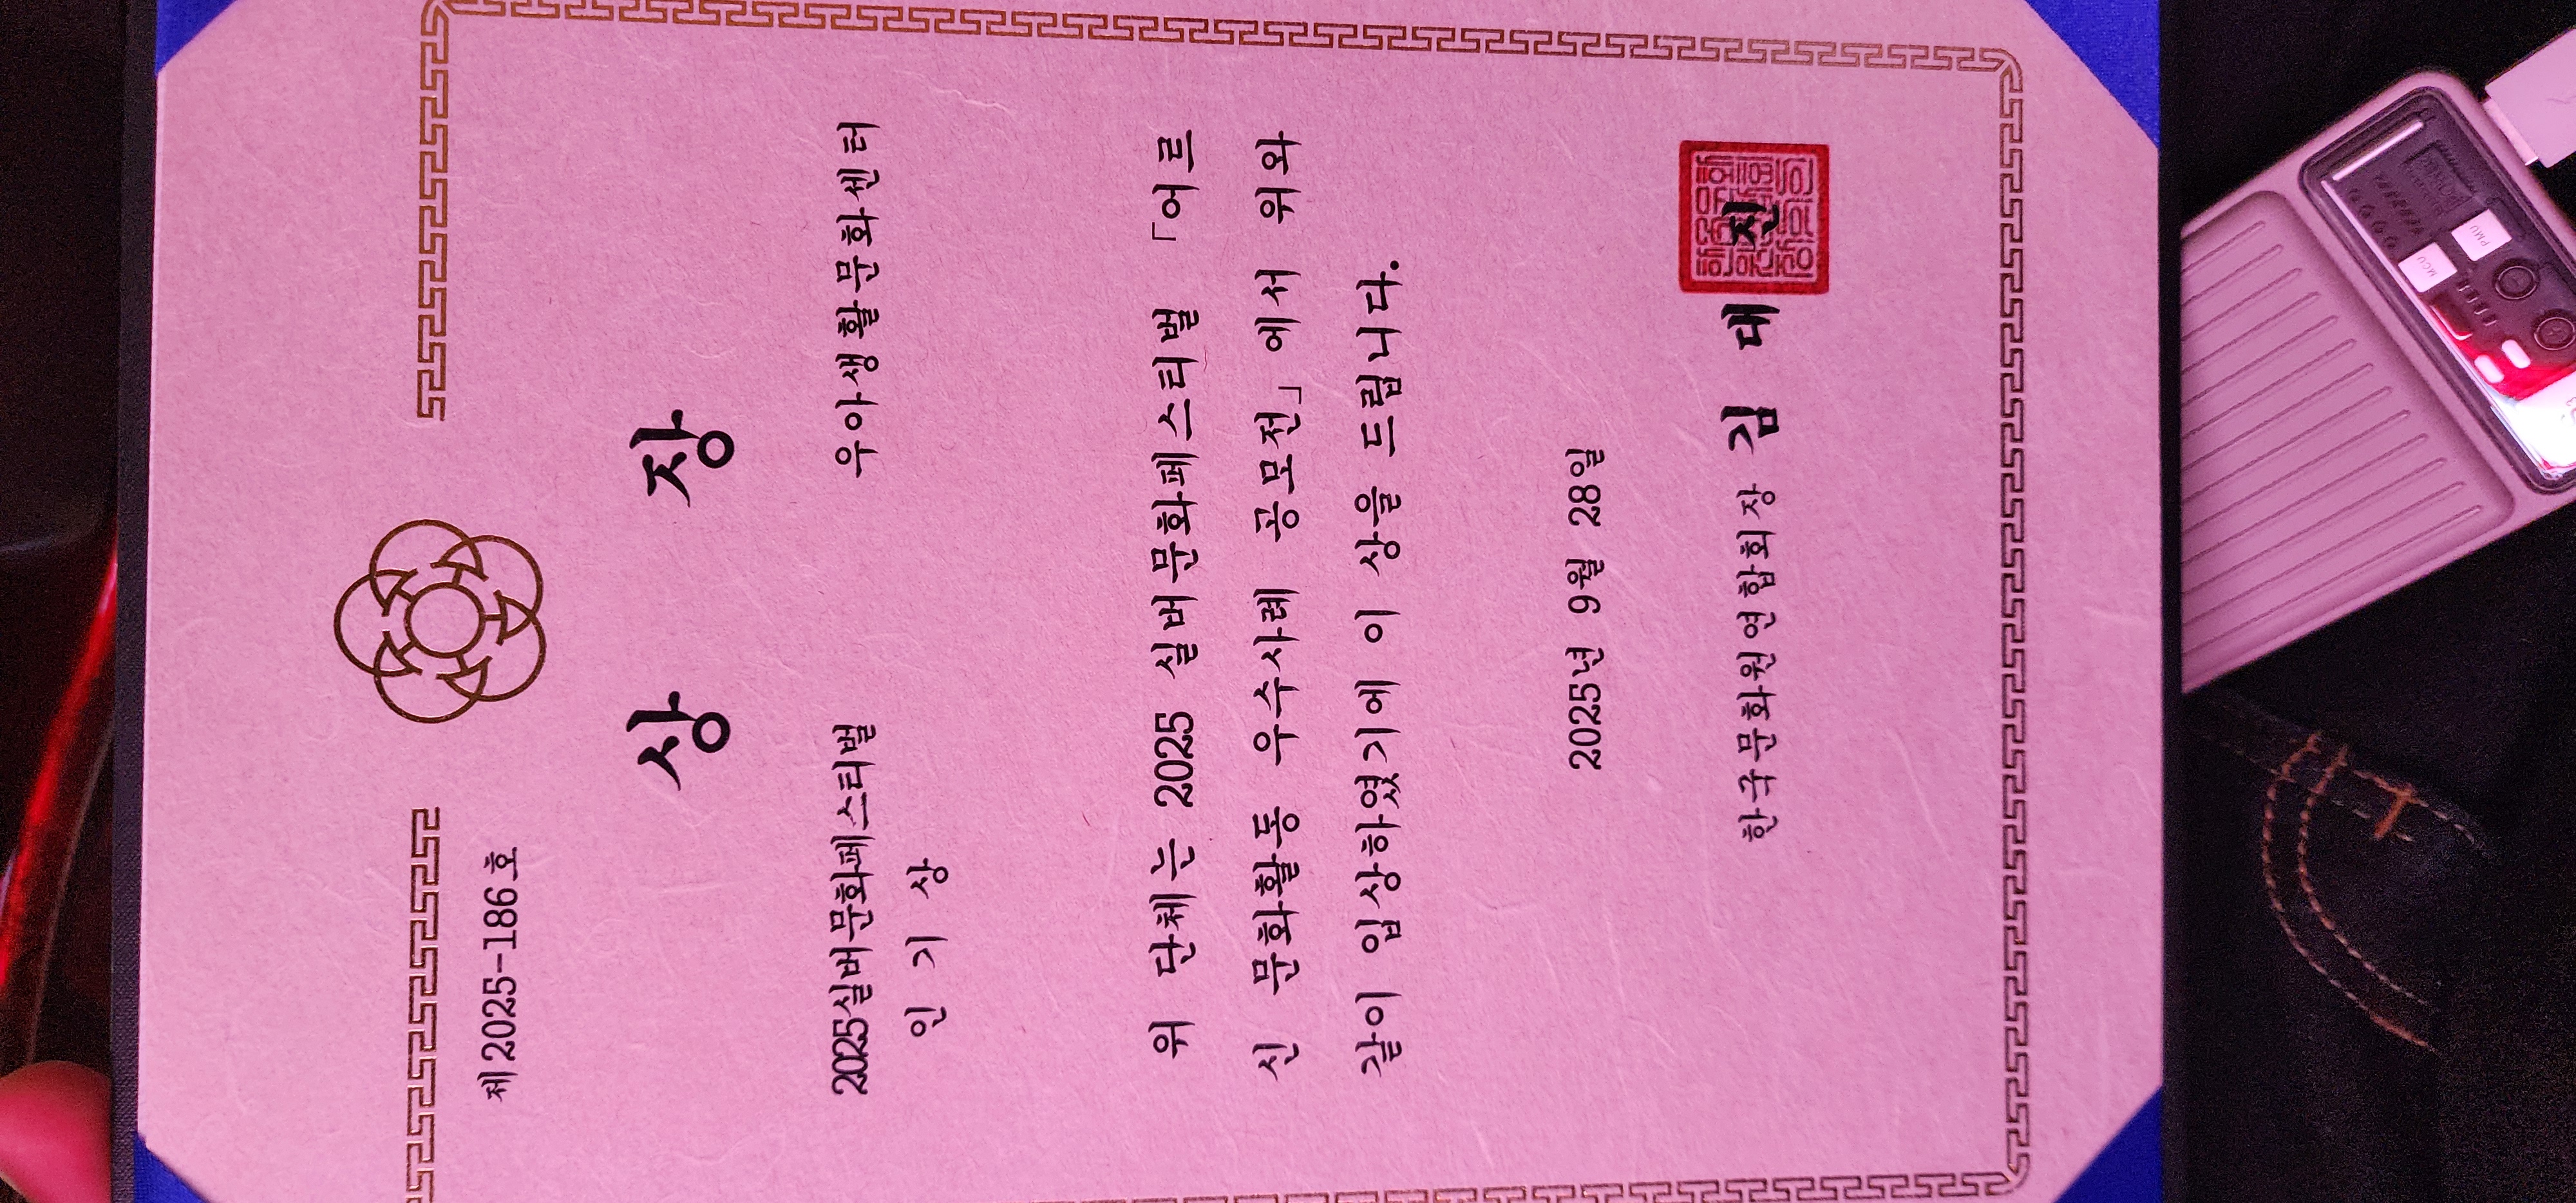 제2025-186호
상 장
2025실버문화페스티벌
인 기 상
우아생활문화센터
위 단체는 2025 실버문화페스티벌 「어르
신 문화활동 우수사례 공모전」에서 위와
같이 입상하였기에 이 상을 드립니다.
2025년 9월 28일
한국문화원연합회장 김 대 진
MCU
PMU